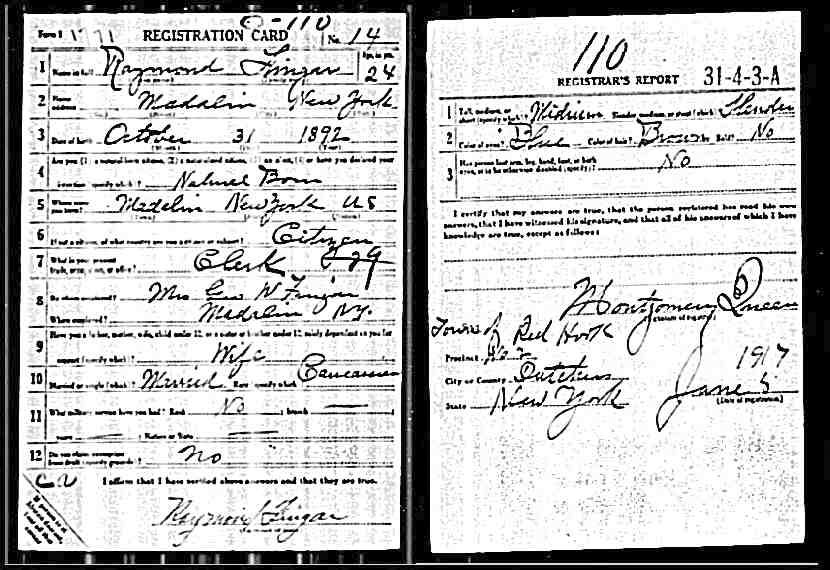 C-110
Form 1 1771 REGISTRATION CARD No. 14
1 Name in full Raymond Fingar Age, in yrs. 24
2 Home address Madalin New York
3 Date of birth October 31 1892
4 Are you (1) a natural born citizen, (2) a naturalized citizen, (3) an alien, (4) or have you declared your
intention (specify which)? Natural Born
5 Where were you born? Madalin New York US
6 If not a citizen, of what country are you a citizen or subject? Citizen
7 What is your present trade, occupation, or office? Clerk 229
8 By whom employed? Mrs Geo W Fingar
Where employed? Madalin NY.
9 Have you a father, mother, wife, child under 12, or a sister or brother under 12, solely dependent on you for
support (specify which)? Wife
10 Married or single (which)? Married Race (specify which)? Caucasian
11 What military service have you had? Rank No ; branch
years ; Nation or State
12 Do you claim exemption from draft (specify grounds)? No
I affirm that I have verified above answers and that they are true.
Raymond Fingar
110
REGISTRAR'S REPORT 31-4-3-A
1 Tall, medium, or short (specify which)? Medium Slender, medium, or stout (which)? Slender
2 Color of eyes? Blue Color of hair? Brown Bald? No
3 Has person lost arm, leg, hand, foot, or both
eyes, or is he otherwise disabled (specify)? No
I certify that my answers are true, that the person registered has read his own
answers, that I have witnessed his signature, and that all of his answers of which I have
knowledge are true, except as follows:
Montgomery Queen
(Signature of registrar)
Town of Red Hook
Precinct No 2
City or County Dutchess 1917
State New York June 5
(Date of registration)